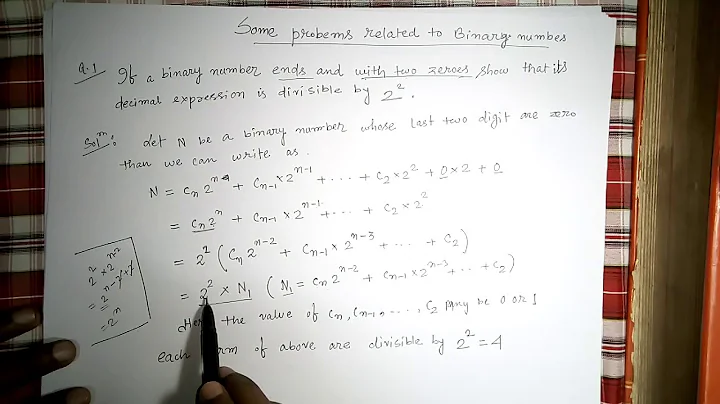 Some probems related to Binary numbes
Q.1 If a binary number ends and with two zeroes show that its
decimal expression is divisible by 2².
Solⁿ: Let N be a binary number whose last two digit are zero
than we can write as.
N = Cₙ 2ⁿ + Cₙ₋₁ × 2ⁿ⁻¹ + ... + C₂ × 2² + 0 × 2 + 0
= Cₙ 2ⁿ + Cₙ₋₁ × 2ⁿ⁻¹ + ... + C₂ × 2²
= 2² (Cₙ 2ⁿ⁻² + Cₙ₋₁ × 2ⁿ⁻³ + ... + C₂)
= 2² × N₁ (N₁ = Cₙ 2ⁿ⁻² + Cₙ₋₁ × 2ⁿ⁻³ + ... + C₂)
the value of Cₙ, Cₙ₋₁, ..., C₂ may be 0 or 1
each of above are divisible by 2² = 4
2² × 2ⁿ⁻²
= 2ⁿ